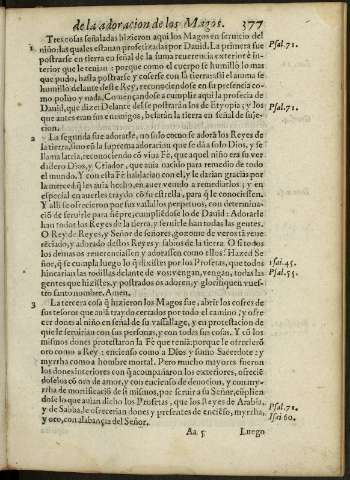 de la adoracion de los Magos. 377
Tres cosas señaladas hizieron aqui los Magos en seruicio del
1 niño: las quales estauan profetizadas por Dauid. La primera fue Psal. 71.
postrarse en tierra en señal de la suma reuerencia exterior è in-
terior que le tenian: porque como el cuerpo se humillò lo mas
que pudo, hasta postrarse y coserse con la tierra: assi el anima se
humillò delante deste Rey, reconociendose en su presencia co-
mo poluo y nada. Començandose a cumplir aqui la profecia de
Dauid, que dize: Delante del se postrarán los de Etyopia; y los Psal. 71.
que antes eran sus enemigos, besarán la tierra en señal de suje-
cion.
2 La segunda fue adorarle, no solo como se adorā los Reyes de
la tierra, sino cō la suprema adoracion que se dà a solo Dios, y se
llama latria, reconociendo cō viua Fè, que aquel niño era su ver-
dadero Dios, y Criador, que auia nacido para remedio de todo
el mundo. Y con esta Fè hablarian con el, y le darian gracias por
la merced q̄ les auia hecho, en auer venido a remediarlos; y en
especial en auerles traydo cō su estrella, para q̄ le conociessen.
Y alli se ofrecieron por sus vassallos perpetuos, con determina-
ciō de seruirle para siēpre, cumpliēdose lo de Dauid: Adorarle
han todos los Reyes de la tierra, y seruirle han todas las gentes.
O Rey de Reyes, y Señor de señores, gozome de veros tā vene-
rado, y adorado destos Reyes y sabios de la tierra. O si todos
los demas os reuerenciassen y adorassen como ellos! Hazed Se-
ñor, q̄ se cumpla luego lo q̄ dixistes por los Profetas, que todos Isai. 45.
hincarian las rodillas delante de vos: vengan, vengan, todas las Psal. 55.
gentes que hizistes, y postrados os adoren, y glorifiquen vues-
tro santo nombre. Amen.
3 La tercera cosa q̄ hizieron los Magos fue, abrir los cofres de
sus tesoros que auiā traydo cerrados por todo el camino; y ofre
cer dones al niño en señal de su vassallage, y en protestacion de
que le seruirian con sus personas, y con todas sus cosas. Y cō los
mismos dones protestaron la Fè que tenia: porque le ofrecierō
oro como a Rey: encienso como a Dios y sumo Sacerdote: y
myrrha como a hombre mortal. Pero mucho mayores fueron
los dones interiores con q̄ acompañaron los exteriores, ofreciē
doselos cō oro de amor, y con encienso de deuotion, y con my-
rrha de mortificaciō de si mismos, por seruir a su Señor, cūplien
dose lo que auian dicho los Profetas, que los Reyes de Arabia, Psal. 71.
y de Sabàa, le ofrecerian dones y presentes de enciēso, myrrha, Isai 60.
y oro, con alabança del Señor.
Aa 5 Luego